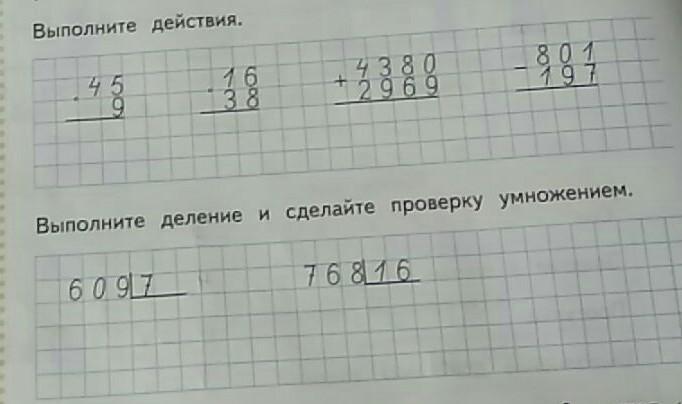 Выполните действия.
· 45 · 16 + 4380 - 801
9 38 2969 197
Выполните деление и сделайте проверку умножением.
609 7 768 16